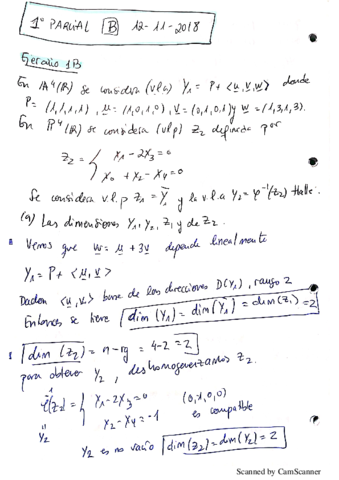 1º PARCIAL B 12-11-2018
Ejercicio 1B
En A⁴(R) se considera (v.l.a) Y₁ = P + <u, v, w> donde
P = (1,1,1,1), u = (1,0,1,0), v = (0,1,0,1) y w = (1,3,1,3).
En P⁴(R) se considera (v.l.p) Z₂ definida por
Z₂ = { x₁ - 2x₃ = 0
x₀ + x₂ - x₄ = 0
Se considera v.l.p Z₁ = Y̅₁ y la v.l.a Y₂ = φ⁻¹(Z₂) Halle:
(a) Las dimensiones Y₁, Y₂, Z₁ y de Z₂.
Vemos que w = u + 3v depende linealmente
Y₁ = P + <u, v>
Dadon <u, v> base de las direcciones D(Y₁), rango 2
Entonces se tiene dim(Y₁) = dim(Y₁) = dim(Z₁) = 2
dim(Z₂) = n - rg = 4 - 2 = 2
para obtener Y₂, deshomogeneizamos Z₂
φ⁻¹(Z₂) = { x₁ - 2x₃ = 0 (0,1,0,0)
x₂ - x₄ = -1 es compatible
Y₂
Y₂ es no vacío dim(Z₂) = dim(Y₂) = 2
Scanned by CamScanner